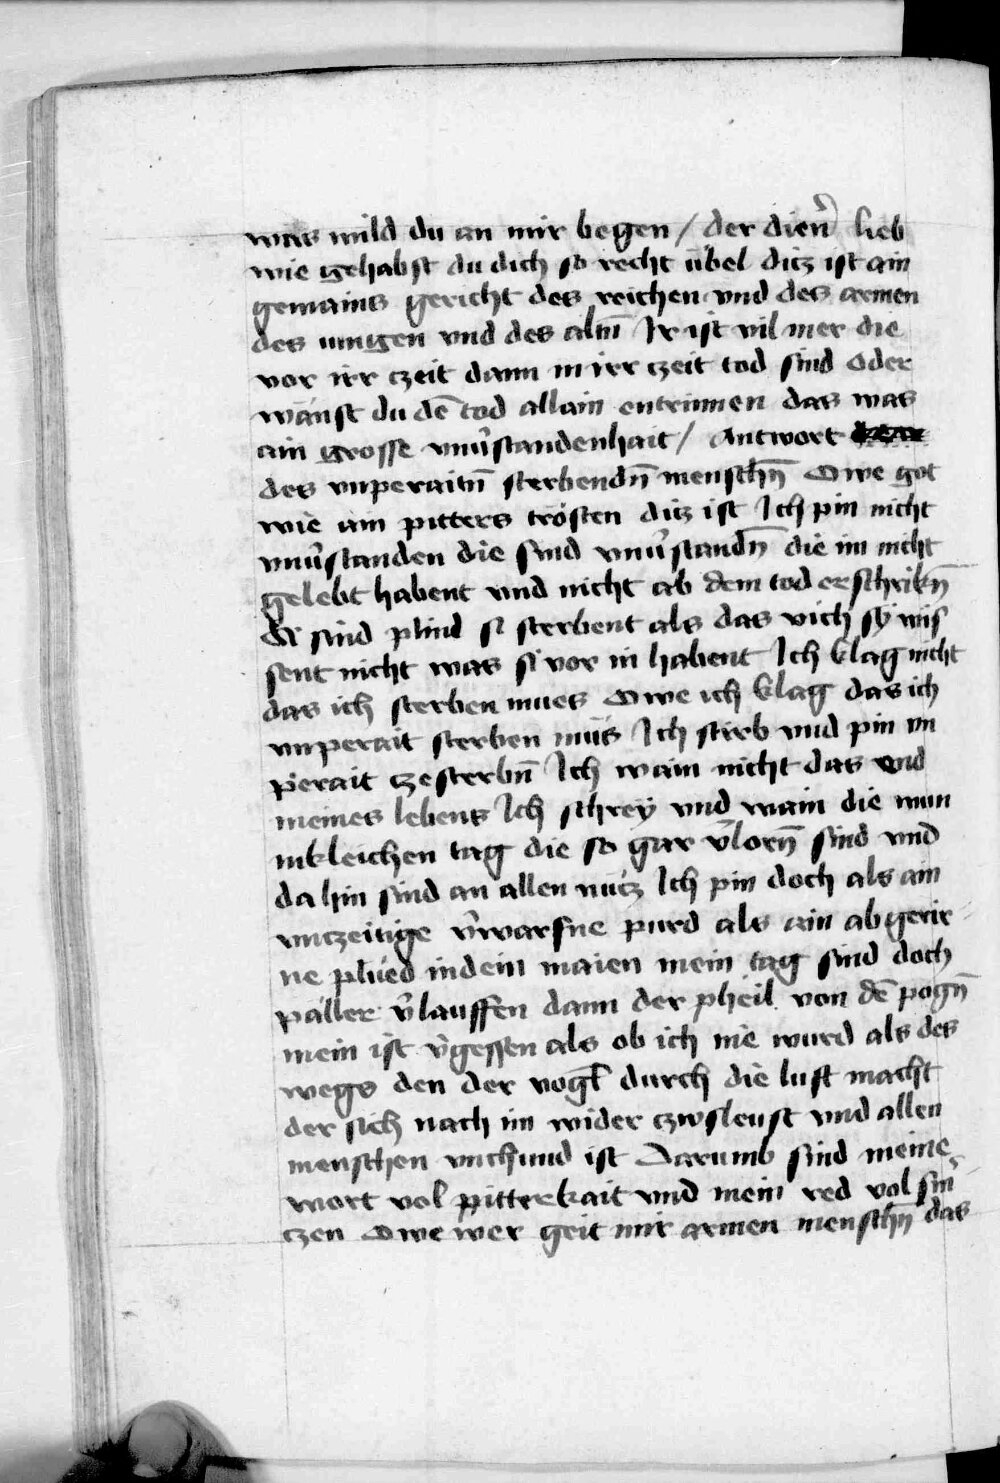 was wild du an mir begen / der dien̄ lieb
wie gehabst du dich so recht übel ditz ist ain
gemains gericht des reichen vnd des armen
des iungen vnd des altn̄ Ir ist vil mer die
vor irr czeit dann in irr czeit tod sind Oder
wänst du dē tod allain entrinnen das was
ain grosse vnūstandenhait / Antwort
des vnperaitn̄ sterbendn̄ menschn̄ Owe got
wie ain pitters trösten ditz ist Ich pin nicht
vnūstanden die sind vnūstandn̄ die im nicht
gelebt habent vnd nicht ab dem tod erschrikn̄
Di sind plind si sterbent als das vich sÿ wis
sent nicht was si vor in habent Ich klag nicht
das ich sterben mues Owe ich klag das ich
vnperait sterben müs Ich stirb vnd pin vn
perait czesterbn̄ Ich wain nicht das end
meines lebens Ich schreÿ vnd wain die wun
nikleichen tag die so gar v̄lorn̄ sind vnd
da hin sind an allen nütz Ich pin doch als ain
vnczeitige v̄warfne purd als ain abgerir
ne plüed in dem maien mein tag sind doch
päller v̄lauffen dann der pheil von dē pogn̄
mein ist v̄gessen als ob ich nie wurd als des
wegs den der vogl̄ durch die luft macht
der sich nach im wider czwsleust vnd allen
menschen vnchund ist Darumb sind meine
wort vol pitterkait vnd mein red vol smˉ
czen Owe wer geit mir armen menschn̄ das